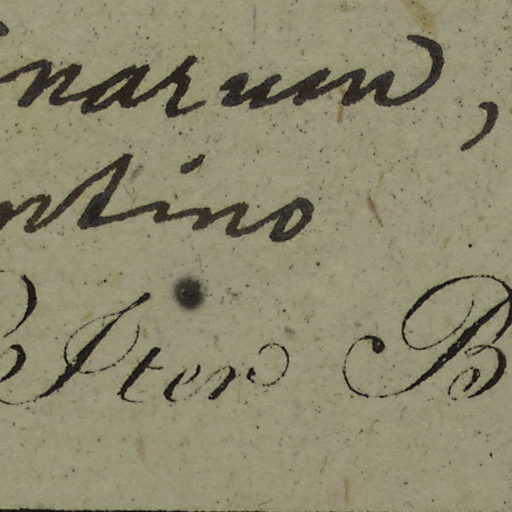 narum,
ntino
Iter B